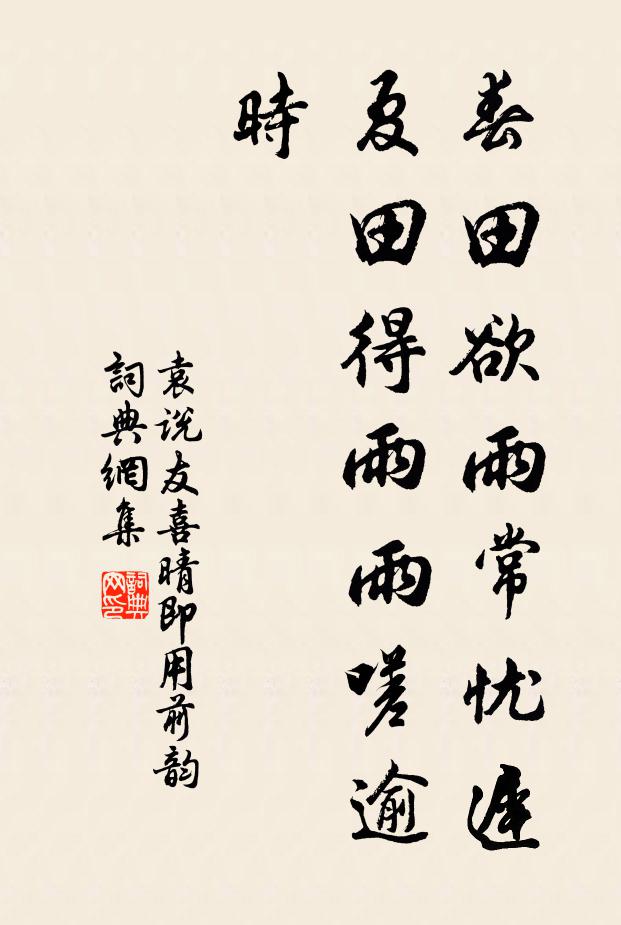 春田欲雨常忧遲
夏田得雨雨嗟逾
時
袁说友喜晴即用前韵
詞典網集
詞典网印